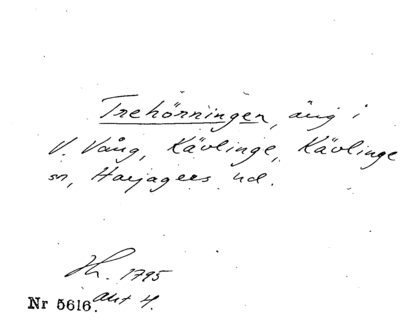 Trehörningen, äng i
V. Vång, Kävlinge, Kävlinge
sn, Harjagers hd.
Jh. 1795
akt 4.
Nr 5616.